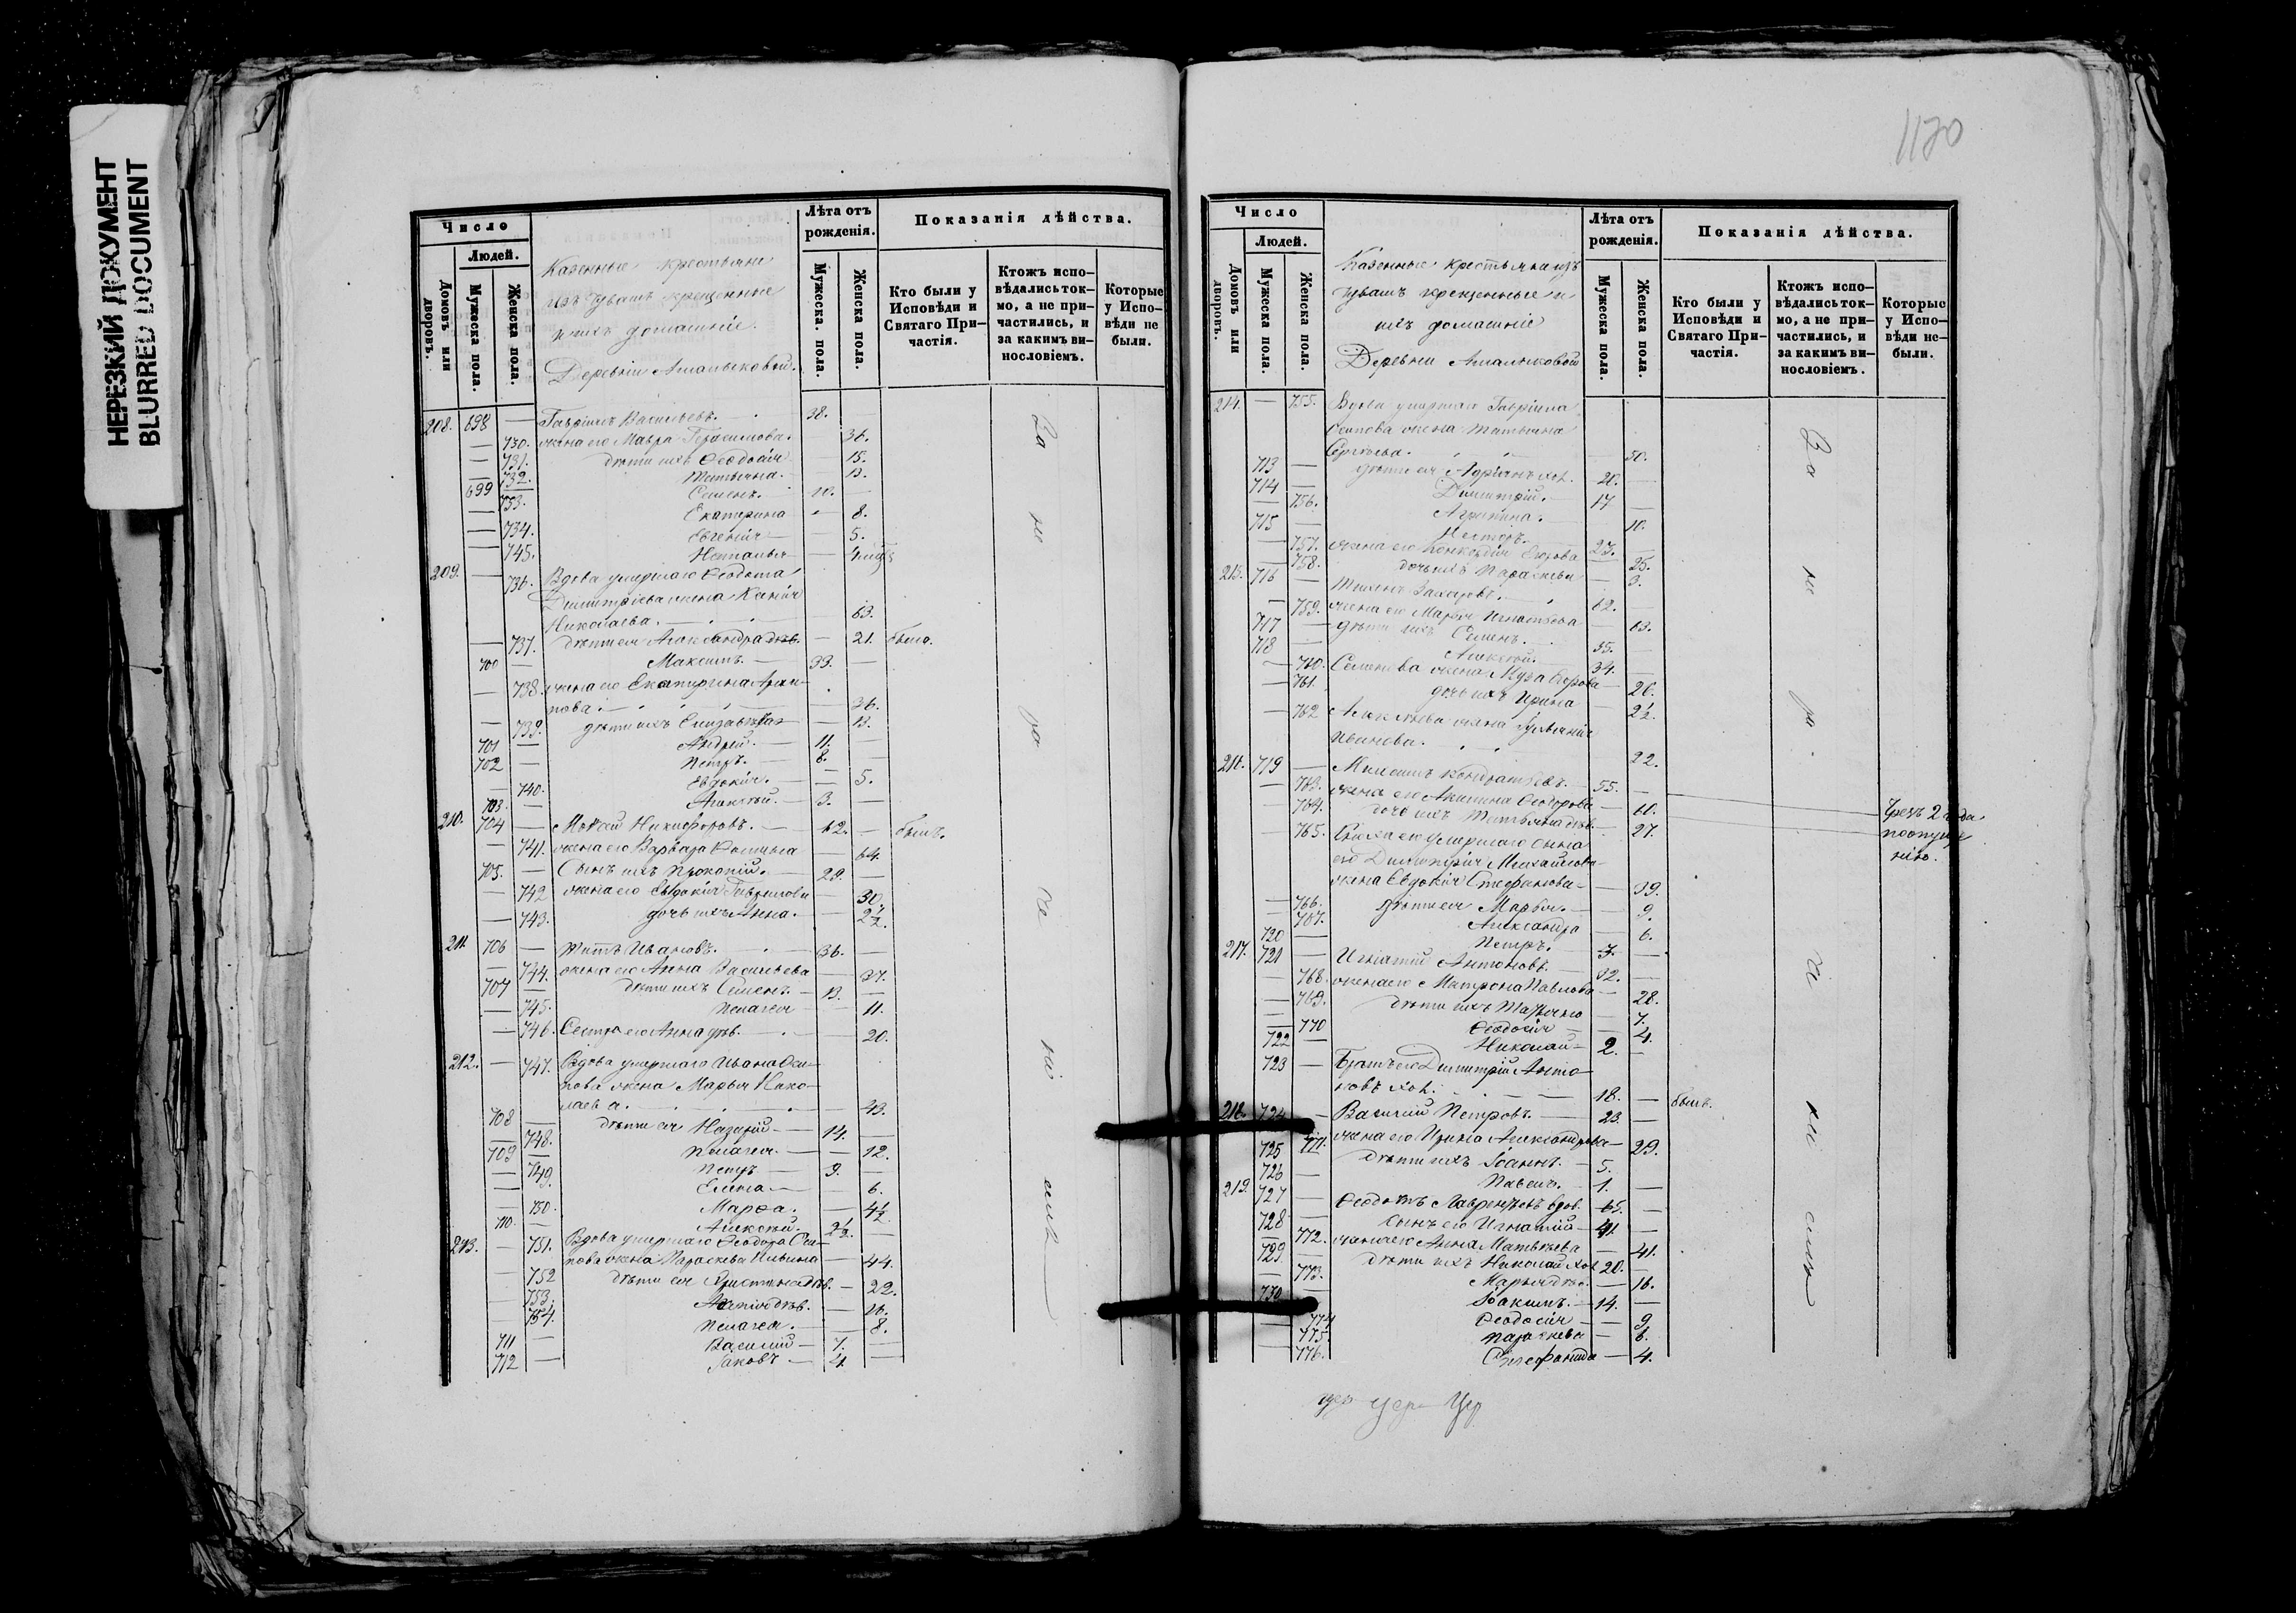 НЕРЕЗКИЙ ДОКУМЕНТ
BLURRED DOCUMENT
Число
Людей.
Домовъ или дворовъ.
Мужеска пола.
Женска пола.
Казенные крестьяне
изъ Чувашъ крещенные
и ихъ домашніе.
Деревни
Лѣта отъ рожденія.
Мужеска пола.
Женска пола.
Показанія дѣйства.
Кто были у Исповѣди и Святаго При-частія.
Ктожъ испо-вѣдались ток-мо, а не при-частились, и за какимъ ви-нословіемъ.
Которые у Испо-вѣди не были.
208. 698 — Гавріилъ Васильевъ. — 38. —
— 730. жена его Мавра Герасимова. 36.
— 731. дѣти ихъ Ѳеодосія — 15.
— 732. Татьяна. — 13.
699 — Семенъ. — 10. —
733. Екатерина — 8.
— 734. Евгенія — 5.
— 745. Наталья — 4
209. — 736. Вдова умершаго Ѳеодота
Димитріева жена Ксенія
Николаева. — 63.
— 737. дѣти ея Александра дѣв. — 21. была.
700 — Максимъ. — 33. —
— 738. жена его Екатерина Архи-
пова. — 36.
— 739. дѣти ихъ Елизавета — 13.
701 — Андрей. — 11.
702 — Петръ. — 8. —
— 740. Евдокія. — 5.
703. — Алексѣй. — 3. —
210. 704 — Мокей Никифоровъ. — 62. — былъ.
— 741. жена его Варвара — 64.
705. — Сынъ ихъ Прокопій. — 29. —
— 742 жена его Евдокія Гаврилова 30.
— 743. дочь ихъ Анна. — 2½.
211. 706 — Титъ Ивановъ. — 36. —
— 744. жена его Анна Васильева — 37.
707 — дѣти ихъ Семенъ. — 13. —
— 745. Пелагея — 11.
— 746. Сестра его Анна дѣв. — 20.
212. — 747. Вдова умершаго Ивана Оси-
пова жена Марья Нико-
лаева. — 43.
708 — дѣти ея Назарій — 14. —
— 748. Пелагея. — 12.
709 — Петръ — 9. —
— 749. Елена — 6.
— 750. Марѳа. — 4½
710. — Алексѣй. — 2½. —
213. — 751. Вдова умершаго Ѳеодора Оси-
пова жена Параскева Ильина — 44.
— 752 дѣти ея Христина дѣв. — 22.
— 753. дѣв. — 16.
— 754. Пелагея. — 8.
711 — Василій — 7. —
712 — Іаковъ — 4. —
За не ра
1170
Число
Людей.
Домовъ или дворовъ.
Мужеска пола.
Женска пола.
Казенные крестьяна изъ
чувашъ крещенные и
ихъ домашніе
Деревни
Лѣта отъ рожденія.
Мужеска пола.
Женска пола.
Показанія дѣйства.
Кто были у Исповѣди и Святаго При-частія.
Ктожъ испо-вѣдались ток-мо, а не при-частились, и за какимъ ви-нословіемъ.
Которые у Испо-вѣди не-были.
214. — 755. Вдова умершаго Гавріила
Осипова жена Татьяна
Сергѣева. 50.
713 — дѣти ея Адріанъ хол. 20. —
714 — Димитрій. — 17 —
— 756. Агрипина. 10.
715 — Несторъ. — 27. —
— 757. жена его Егорова 25.
— 758. дочь ихъ Параскева — 3.
215. 716 — Захаровъ. — 62. —
— 759. жена его Марья Игнатьева — 63.
717 — дѣти ихъ Семенъ. — 35. —
718 — Алексѣй. — 34. —
— 760. Семенова жена Егорова — 26.
— 761. дочь ихъ Ирина — 2½.
— 762 Алексѣева жена
Иванова. 22.
216. 719 — Михаилъ Кондратьевъ. — 55. —
— 763. жена его Акилина Ѳеодорова — 60.
— 764. дочь ихъ Татьяна дѣв. — 27.
— 765. Сноха его умершаго сына
его Димитрія Михайлова
жена Евдокія Стефанова — 39.
— 766. дѣти ея Марья. — 9.
— 767. Александра — 6.
720 — Петръ. — 3. —
Чрезъ 2 года
по опуще
нію.
217. 721 — Игнатій Антоновъ. — 32. —
— 768. жена его Матрона Павлова — 28.
— 769. дѣти ихъ — 7.
— 770 Ѳеодосія — 4.
722 — Николай — 2. —
723 — Братъ его Димитрій Анто-
новъ хол. — 18. — былъ.
218. 724 — Василій Петровъ. — 23. —
— 771. жена его Ирина Александрова — 29.
725 — дѣти ихъ Іоаннъ. — 5.
726 — Павелъ. — 1. —
219. 727 — Ѳеодотъ Лаврентьевъ вдов. — 65. —
728 — сынъ его Игнатій — 41. —
— 772. жена его Анна Матвѣева — 41.
729 — дѣти ихъ Николай хол 20. —
— 773. Марья дѣв. — 16.
730 — Іоакимъ. — 14. —
— 774 Ѳеодосія — 9.
— 775. Параскева — 6.
— 776. Стефанида — 4.
За не ра